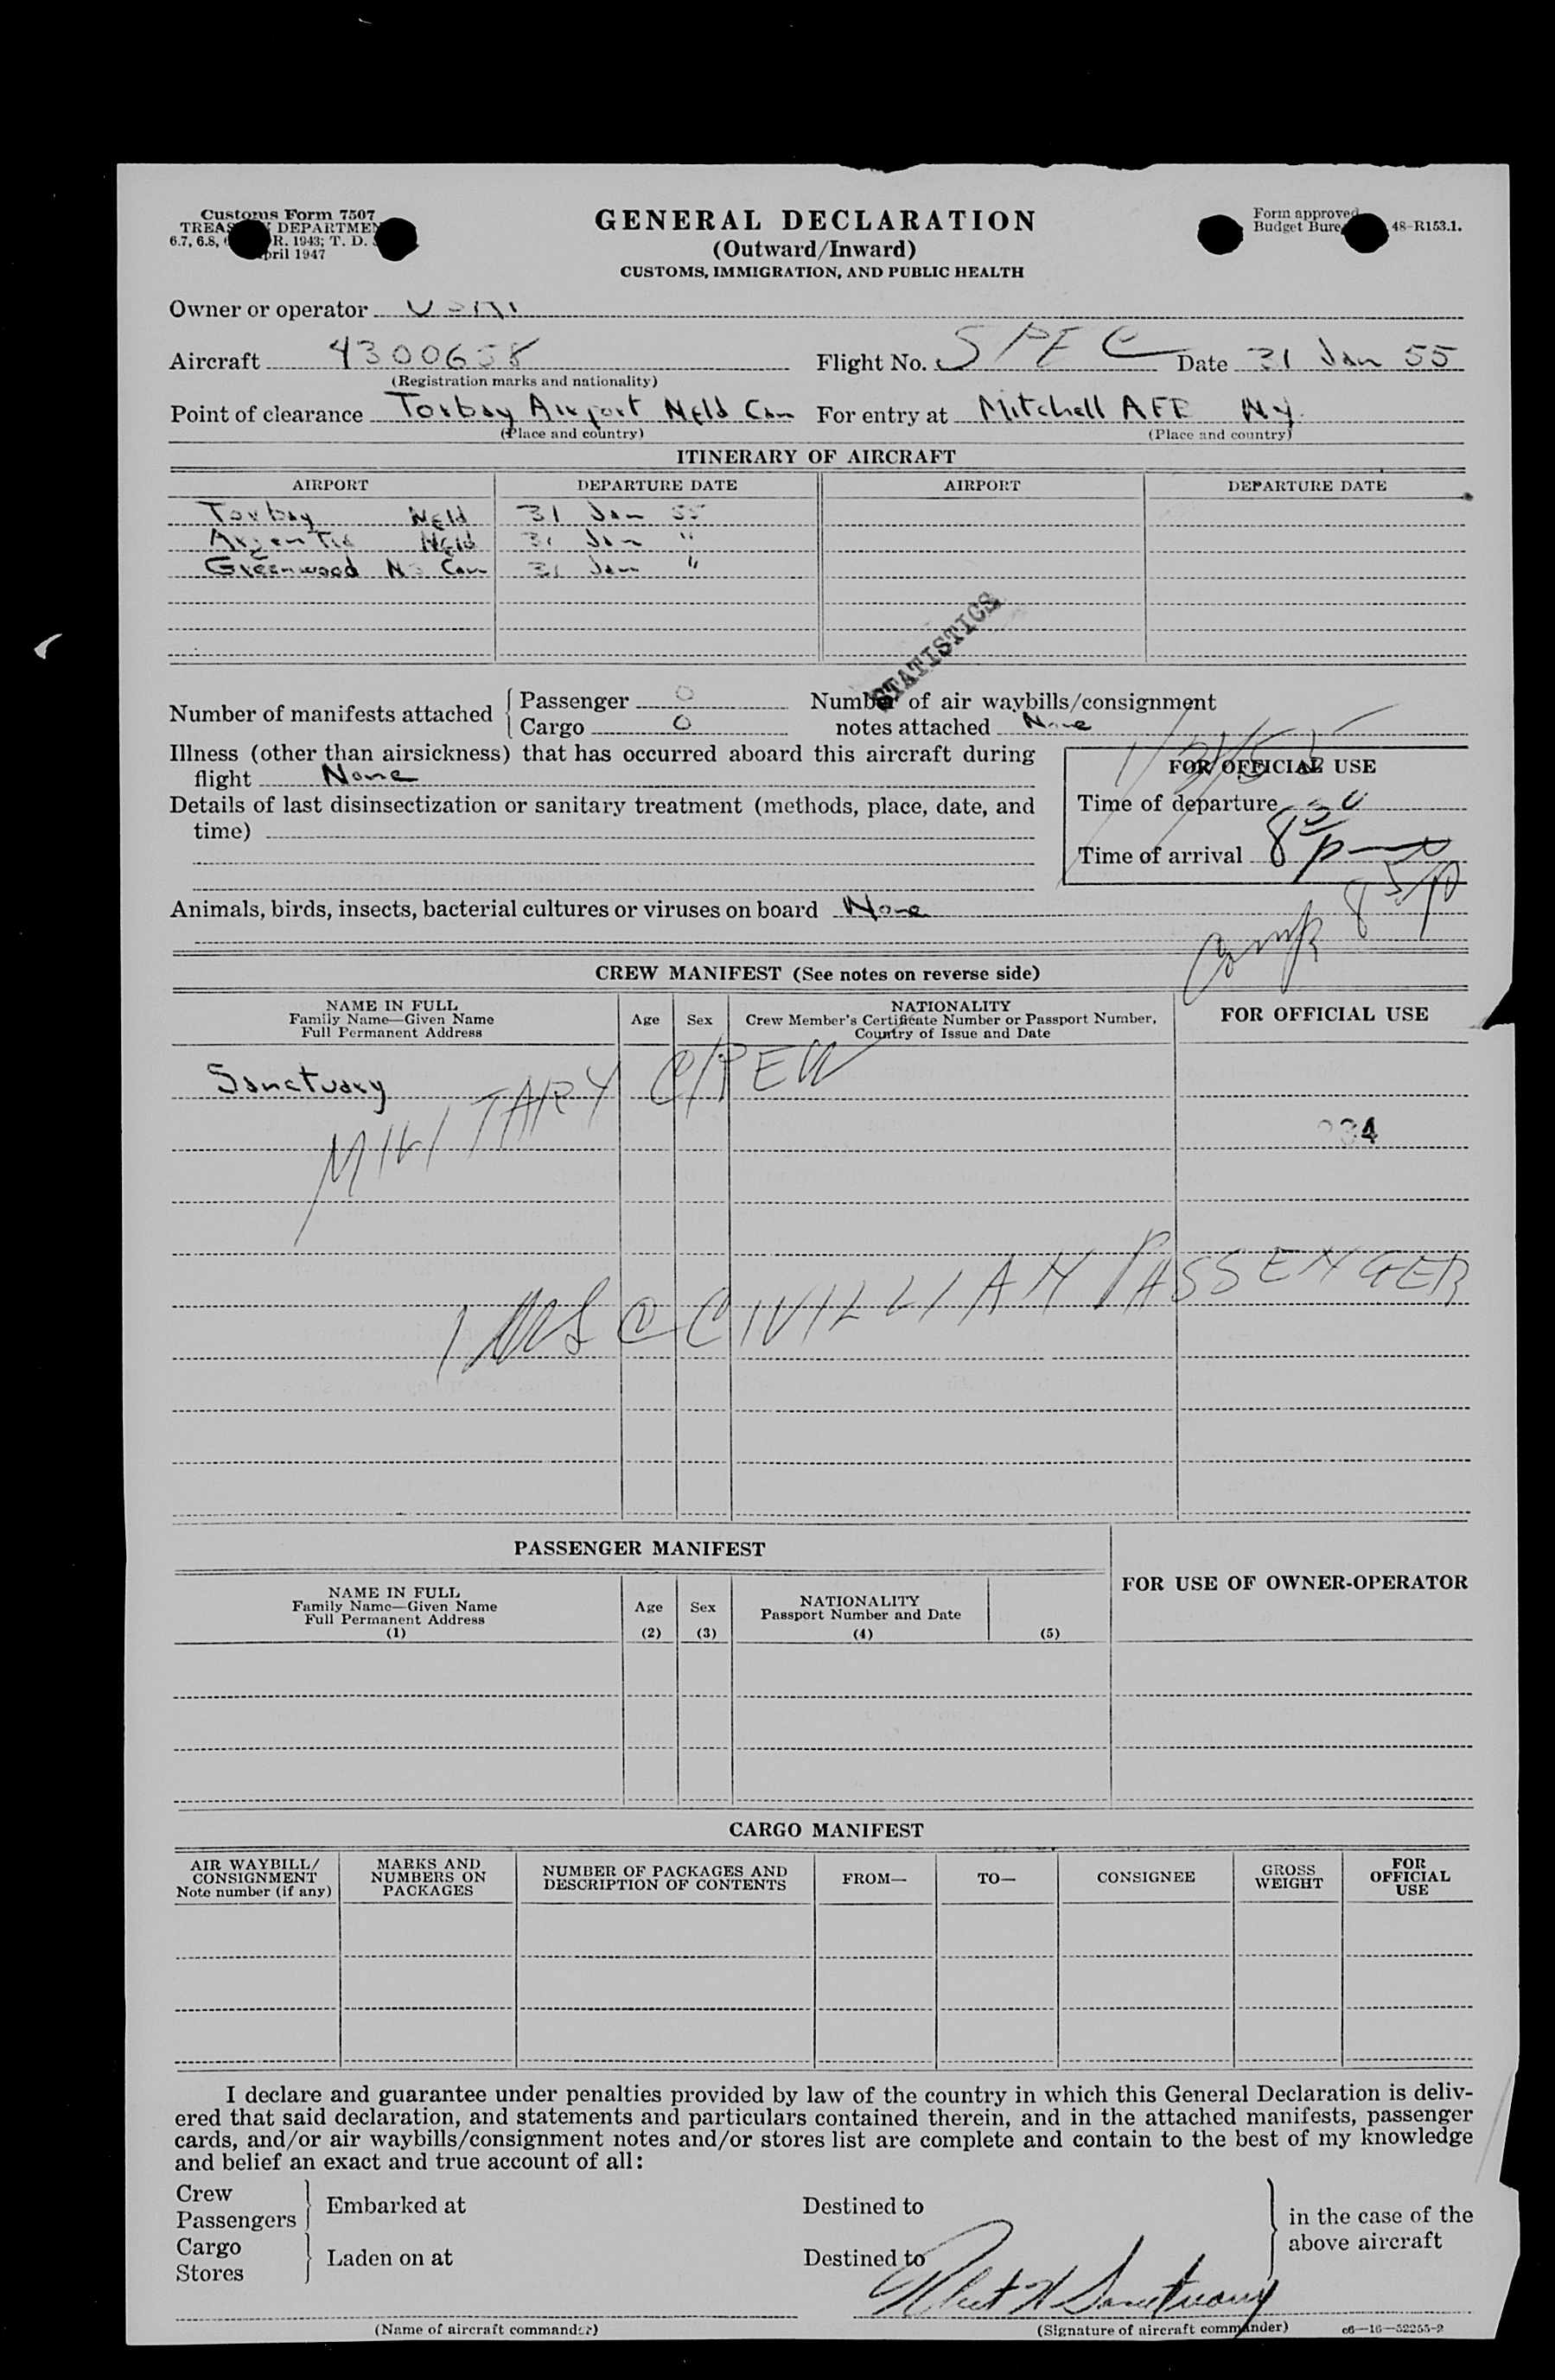 Customs Form 7507
TREAS DEPARTMEN
6.7, 6.8, R. 1943; T. D.
pril 1947
GENERAL DECLARATION
(Outward/Inward)
CUSTOMS, IMMIGRATION, AND PUBLIC HEALTH
Form approved
Budget Bure 48-R153.1.
Owner or operator
Aircraft 4300658 Flight No. SPEC Date 31 Jan 55
(Registration marks and nationality)
Point of clearance Torbay Airport Nfld Can For entry at Mitchell AFB NY
(Place and country) (Place and country)
ITINERARY OF AIRCRAFT
AIRPORT DEPARTURE DATE AIRPORT DEPARTURE DATE
Torbay Nfld 31 Jan 55
Argentia Nfld 31 Jan "
Greenwood NS Can 31 Jan "
STATISTICS
Number of manifests attached { Passenger 0 Number of air waybills/consignment
Cargo 0 notes attached None
Illness (other than airsickness) that has occurred aboard this aircraft during
flight None
1/31/55
FOR OFFICIAL USE
Details of last disinsectization or sanitary treatment (methods, place, date, and
time)
Time of departure
Time of arrival 8 30 pm
Animals, birds, insects, bacterial cultures or viruses on board None
8 5
CREW MANIFEST (See notes on reverse side)
NAME IN FULL
Family Name—Given Name
Full Permanent Address
Age Sex
NATIONALITY
Crew Member's Certificate Number or Passport Number,
Country of Issue and Date
FOR OFFICIAL USE
Sanctuary
MILITARY CREW
34
1 CIVILLIAN PASSENGER
PASSENGER MANIFEST
FOR USE OF OWNER-OPERATOR
NAME IN FULL
Family Name—Given Name
Full Permanent Address
(1)
Age
(2)
Sex
(3)
NATIONALITY
Passport Number and Date
(4) (5)
CARGO MANIFEST
AIR WAYBILL/
CONSIGNMENT
Note number (if any)
MARKS AND
NUMBERS ON
PACKAGES
NUMBER OF PACKAGES AND
DESCRIPTION OF CONTENTS
FROM—
TO—
CONSIGNEE
GROSS
WEIGHT
FOR
OFFICIAL
USE
I declare and guarantee under penalties provided by law of the country in which this General Declaration is deliv-
ered that said declaration, and statements and particulars contained therein, and in the attached manifests, passenger
cards, and/or air waybills/consignment notes and/or stores list are complete and contain to the best of my knowledge
and belief an exact and true account of all:
Crew
Passengers } Embarked at Destined to
Cargo
Stores } Laden on at Destined to
} in the case of the
above aircraft
H Sanctuary
(Name of aircraft commander) (Signature of aircraft commander) c6—16—52255-2